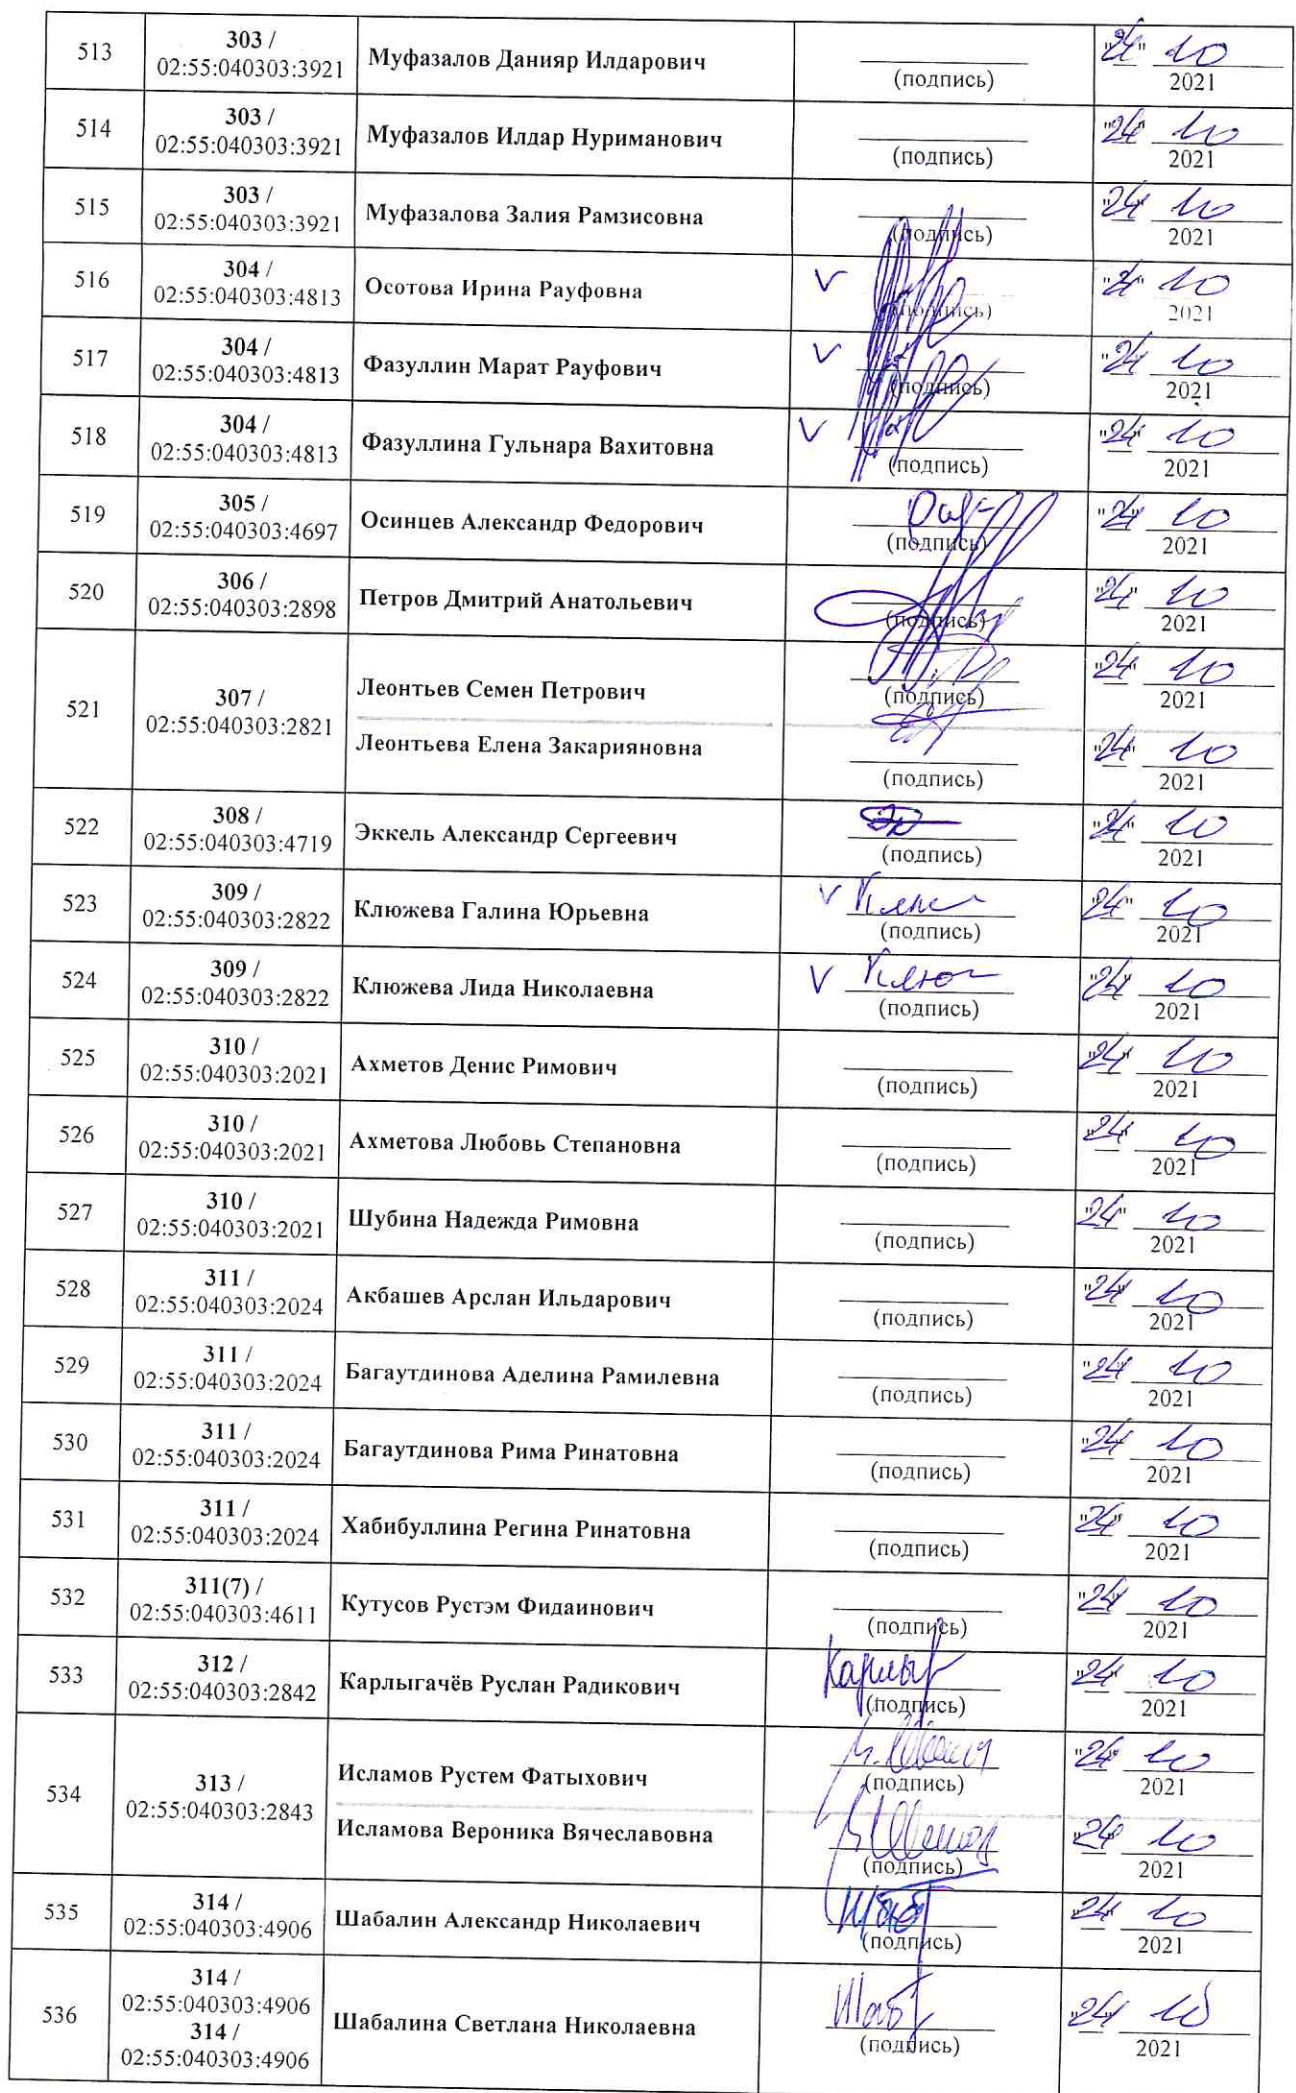 513
303 /
02:55:040303:3921
Муфазалов Данияр Илдарович
(подпись)
"24" 10
2021
514
303 /
02:55:040303:3921
Муфазалов Илдар Нуриманович
(подпись)
"24" 10
2021
515
303 /
02:55:040303:3921
Муфазалова Залия Рамзисовна
(подпись)
"24" 10
2021
516
304 /
02:55:040303:4813
Осотова Ирина Рауфовна
V
(подпись)
"24" 10
2021
517
304 /
02:55:040303:4813
Фазуллин Марат Рауфович
V
(подпись)
"24" 10
2021
518
304 /
02:55:040303:4813
Фазуллина Гульнара Вахитовна
V
(подпись)
"24" 10
2021
519
305 /
02:55:040303:4697
Осинцев Александр Федорович
(подпись)
"24" 10
2021
520
306 /
02:55:040303:2898
Петров Дмитрий Анатольевич
(подпись)
"24" 10
2021
521
307 /
02:55:040303:2821
Леонтьев Семен Петрович
(подпись)
"24" 10
2021
Леонтьева Елена Закарияновна
(подпись)
"24" 10
2021
522
308 /
02:55:040303:4719
Эккель Александр Сергеевич
(подпись)
"24" 10
2021
523
309 /
02:55:040303:2822
Клюжева Галина Юрьевна
V
(подпись)
"24" 10
2021
524
309 /
02:55:040303:2822
Клюжева Лида Николаевна
V
(подпись)
"24" 10
2021
525
310 /
02:55:040303:2021
Ахметов Денис Римович
(подпись)
"24" 10
2021
526
310 /
02:55:040303:2021
Ахметова Любовь Степановна
(подпись)
"24" 10
2021
527
310 /
02:55:040303:2021
Шубина Надежда Римовна
(подпись)
"24" 10
2021
528
311 /
02:55:040303:2024
Акбашев Арслан Ильдарович
(подпись)
"24" 10
2021
529
311 /
02:55:040303:2024
Багаутдинова Аделина Рамилевна
(подпись)
"24" 10
2021
530
311 /
02:55:040303:2024
Багаутдинова Рима Ринатовна
(подпись)
"24" 10
2021
531
311 /
02:55:040303:2024
Хабибуллина Регина Ринатовна
(подпись)
"24" 10
2021
532
311(7) /
02:55:040303:4611
Кутусов Рустэм Фидаинович
(подпись)
"24" 10
2021
533
312 /
02:55:040303:2842
Карлыгачёв Руслан Радикович
(подпись)
"24" 10
2021
534
313 /
02:55:040303:2843
Исламов Рустем Фатыхович
(подпись)
"24" 10
2021
Исламова Вероника Вячеславовна
(подпись)
"24" 10
2021
535
314 /
02:55:040303:4906
Шабалин Александр Николаевич
(подпись)
"24" 10
2021
536
314 /
02:55:040303:4906
314 /
02:55:040303:4906
Шабалина Светлана Николаевна
(подпись)
"24" 10
2021